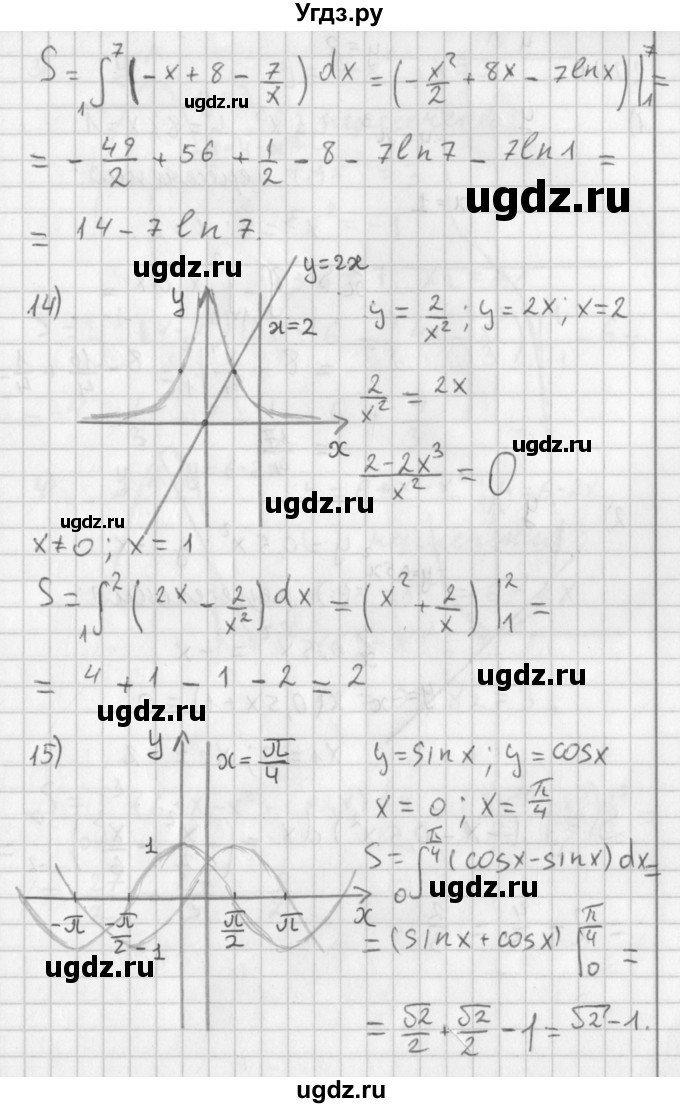 Угдз.ру
S = ₁∫⁷ (-x + 8 - 7/x) dx = (-x²/2 + 8x - 7lnx) |₁⁷ =
ugdz.ru
= - 49/2 + 56 + 1/2 - 8 - 7ln7 - 7ln1 =
ugdz.ru
= 14 - 7 ln 7.
ugdz.ru
14) y y=2x x=2 x
y = 2/x²; y = 2x; x=2
2/x² = 2x
ugdz.ru
(2-2x³)/x² = 0
ugdz.ru
ugdz.ru
x≠0; x = 1
S = ₁∫² (2x - 2/x²) dx = (x² + 2/x) |₁² =
= 4 + 1 - 1 - 2 = 2
ugdz.ru
ugdz.ru
15) y x=π/4 1 -π -π/2 -1 π/2 π x
y = sinx; y = cosx
x = 0; x = π/4
S = ₀∫^π/4 (cosx-sinx) dx =
ugdz.ru
= (sinx + cosx) |₀^π/4 =
ugdz.ru
= √2/2 + √2/2 - 1 = √2 - 1.
ugdz.ru